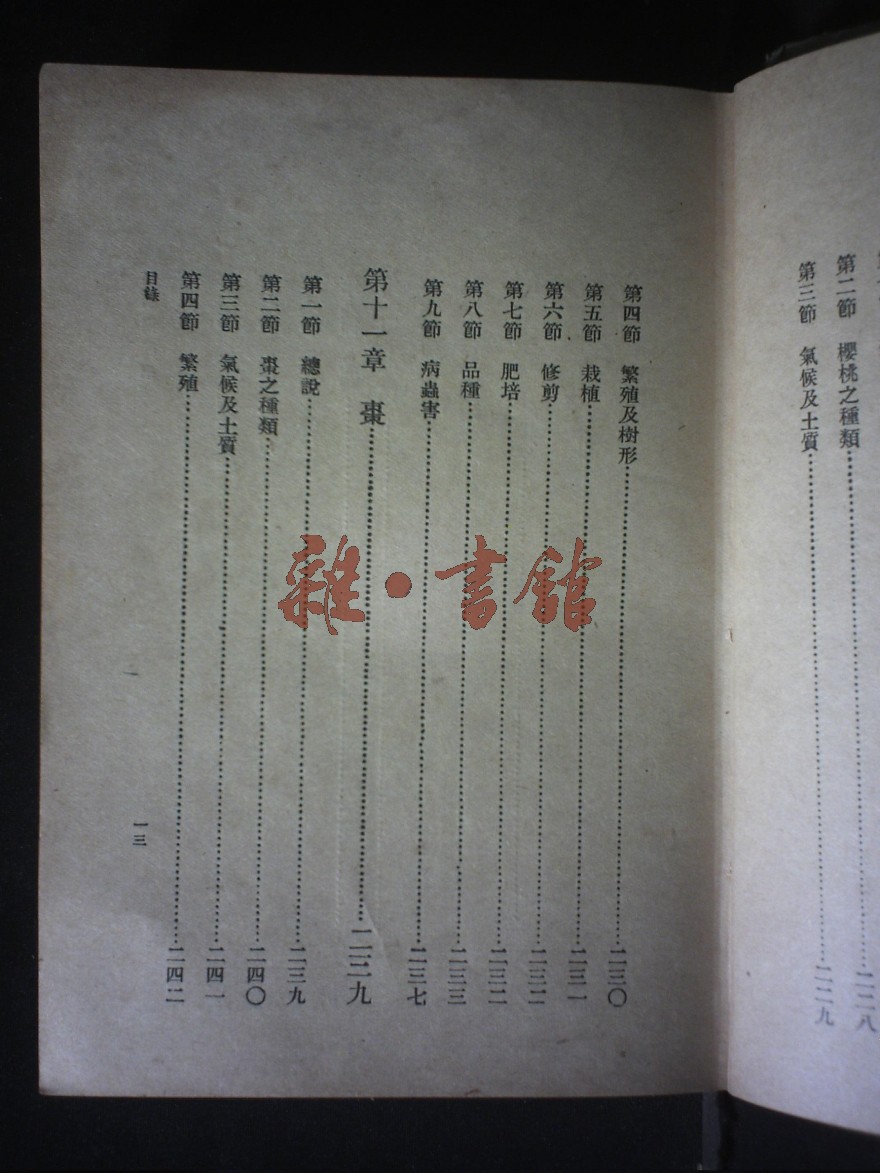 第二節　櫻桃之種類……二二八
第三節　氣候及土質……二二九
第四節　繁殖及樹形……二三〇
第五節　栽植……二三一
第六節　修剪……二三二
第七節　肥培……二三二
第八節　品種……二三三
第九節　病蟲害……二三七
第十一章　棗……二三九
第一節　總說……二三九
第二節　棗之種類……二四〇
第三節　氣候及土質……二四一
第四節　繁殖……二四二
目錄
一三
雜·書館